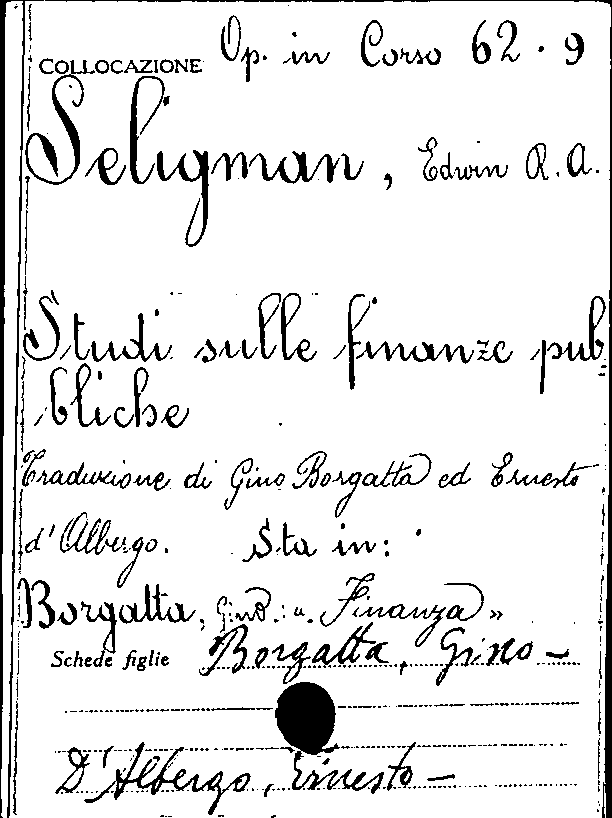 COLLOCAZIONE Op. in Corso 62.9
Seligman, Edwin R. A.
Studi sulle finanze pub=
bliche
Traduzione di Gino Borgatta ed Ernesto
d'Albergo. Sta in:
Borgatta, Gino.: "Finanza"
Schede figlie Borgatta, Gino —
D'Albergo, Ernesto —